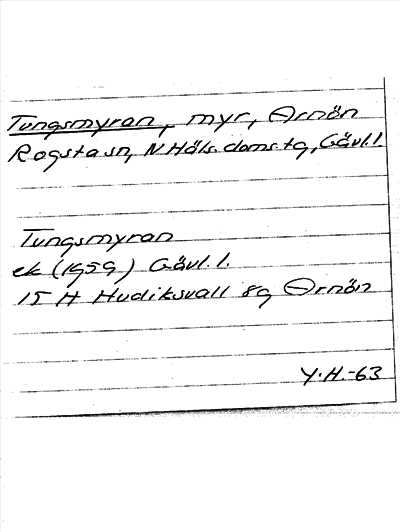 Tungsmyran, myr, Arnön
Rogsta sn, N Häls. doms tg, Gävl. l.
Tungsmyran
ek (1959) Gävl. l.
15 H Hudiksvall 8g Arnön
Y.H.-63